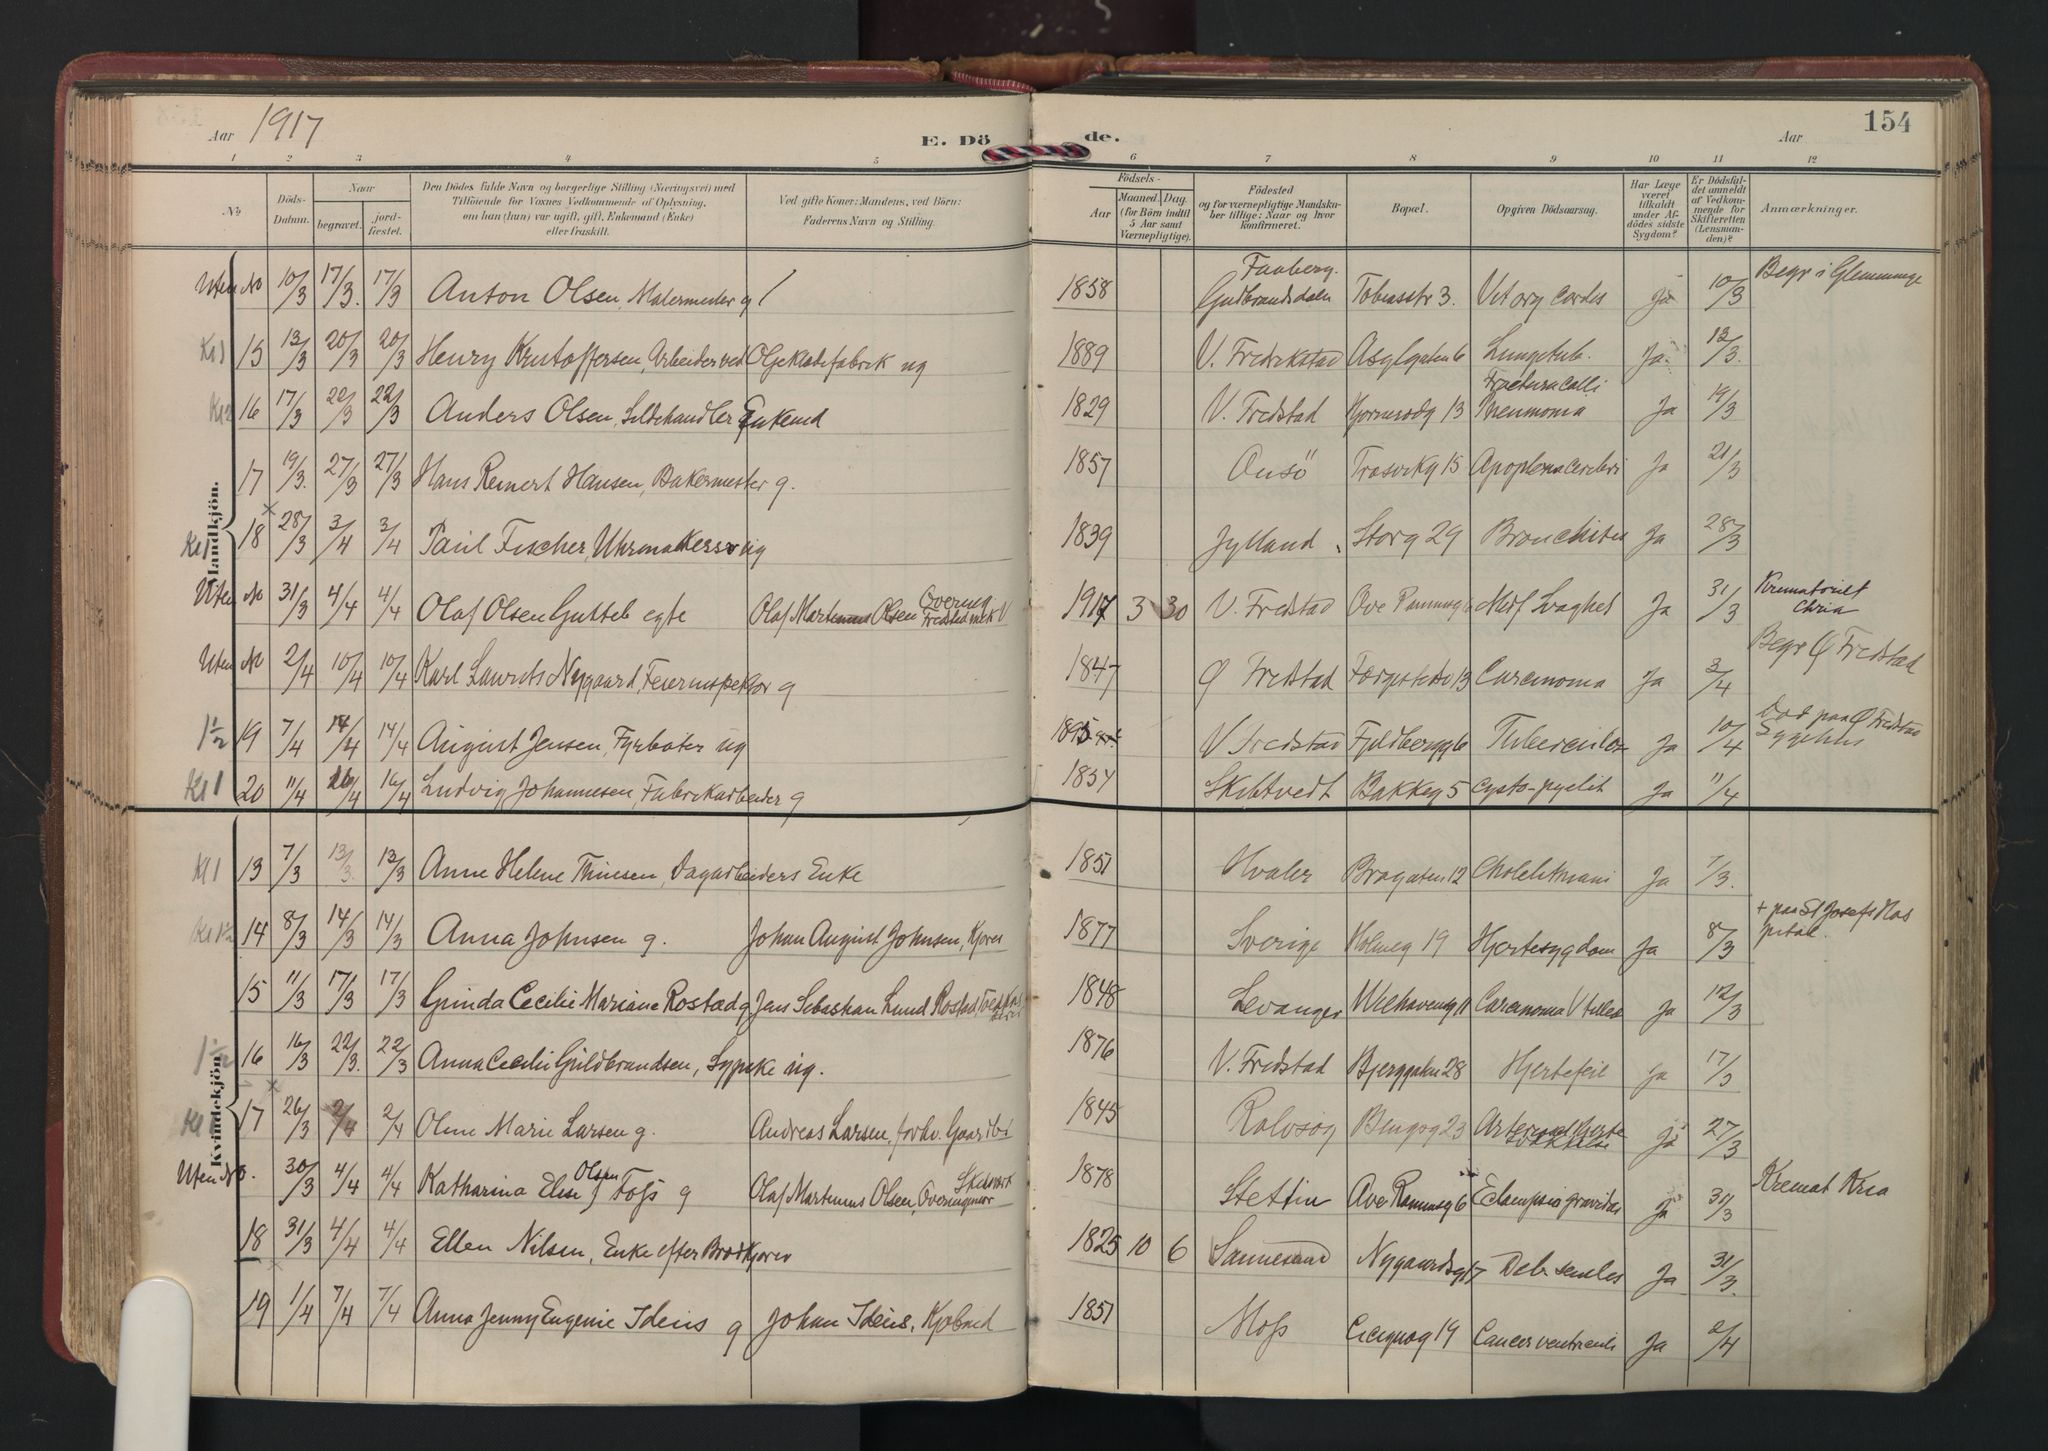 154
Aar 1917
E. Dö de.
Aar
1 2 3 4 5 6 7 8 9 10 11 12
No
Döds-Datum.
Naar
begravet.
jord-fæstet.
Den Dödes fulde Navn og borgerlige Stilling (Næringsvei) med
Tilföiende for Voxnes Vedkommende af Oplysning,
om han (hun) var ugift, gift, Enkemand (Enke)
eller fraskilt.
Ved gifte Koner: Mandens, ved Börn:
Faderens Navn og Stilling.
Födsels-
Aar
Maaned. Dag.
(for Börn indtil
5 Aar samt
Værnepligtige).
Födested
og for værnepligtige Mandsku-
ber tillige: Naar og hvor
konfirmeret.
Bopæl.
Opgiven Dödsaarsag.
Har Læge
været
tilkaldt
under Af-
dödes sidste
Sygdom?
Er Dödsfal-
det anmeldt
af Vedkom-
mende for
Skifteretten
(Lensman-
den)?
Anmærkninger.
Mandkjön.
Uten No 10/3 17/3. 17/3 Anton Olsen, Malermester g / 1858 Faaberg. Gudbrandsdalen Tobiasstr 3. Vit org cordis ja 10/3 Begr i Glemminge
Kl 1 15 13/3 20/3 20/3 Henry Kristoffersen, Arbeider ved Oljeklædefabrik ug 1889 V. Fredrikstad Asylgaten 6 Lungetub. Ja 13/3.
Kl 2 16 17/3 22/3 22/3 Anders Olsen, Sildehandler Enkemd 1829 V. Fredstad 13 Fractura colli Pneumonia Ja 19/3
17 19/3. 27/3 27/3 Hans Reinert Hansen, Bakermester g. 1857 Onsö Trosvikg 15 Apoplexia cerebri Ja 21/3
Kl 1 18 28/3 3/4 3/4 Paul Fischer, Uhrmaker ug 1839 Jylland Storg 29 Bronchitis Ja 28/3
Uten No 31/3 4/4 4/4 Olaf Olsen Gutteb egte Olaf Martinus Olsen Overing Fredstad mek V 1917 3 30 V. Fredstad Ove Ramms g 6 Medf Svaghet Ja 31/3 Krematoriet Chria
Uten No 2/4 10/4 10/4 Karl Laurits Nygaard, Feierinspektor g 1847 Ø Fredstad Færgestedv 13 Carcinoma Ja 3/4 Begr Ø Fredstad
1 1/2 19 7/4 14/4 14/4 August Jensen, Fyrböter ug 1895 V Fredstad Fjeldbergg 6 Tuberculose Ja 10/4 Död paa Ø Fredstad Sygehus
Kl 1 20 11/4 16/4 16/4 Ludvig Johannesen, Fabrikarbeider g 1857 Skibtvedt Bakkeg 5 Cysto-pyelit Ja 11/4
Kvindekjön.
Kl 1 13 7/3 13/3. 13/3 Anne Helene Thinesen, Dagarbeiders Enke 1851 Hvaler Brogaten 12 Ja 7/3.
Kl 1 1/2 14 8/3 14/3 14/3 Anna Johnsen g. Johan August Johnsen, Kjörer 1877 Sverige Holmeg 19 Hjertesygdom Ja 8/3 + paa St Josefs Hospital.
15 11/3 17/3 17/3 Gunda Cecilie Mariane Rostad g Jens Sebastian Lund Rostad, 1848 Levanger Welhavensg 11 Carcinoma Ja 12/3
1 1/2 16 16/3 22/3. 22/3 Anna Cecilie Guldbrandsen, Sypike ug. 1876 V. Fredstad Bjerggaten 28 Hjertefeil Ja 17/3
Kl 17 26/3 2/4 2/4 Oline Marie Larsen g. Andreas Larsen, forhv. Gaardbr 1845 Rolvsöy 23 ja 27/3
Uten No. 30/3 4/4 4/4 Katharina Elise Olsen f Foss g Olaf Martinus Olsen, Overingeniör 1878 Stettin Ove Rammsg 6 Eclampsia gravidar ja 31/3 Kremat Kria
18 31/3 4/4 4/4 Ellen Nilsen, Enke efter Brödkjörer 1825 10 6 Sannesund Nygaardsg 17 Deb. seniles Ja 31/3.
19 1/4 7/4 7/4 Anna Jenny Eugenie Ideus g Johan Ideus, Kjöbmd 1851 Moss Cicignog 19 Cancer ventriculi Ja 2/4